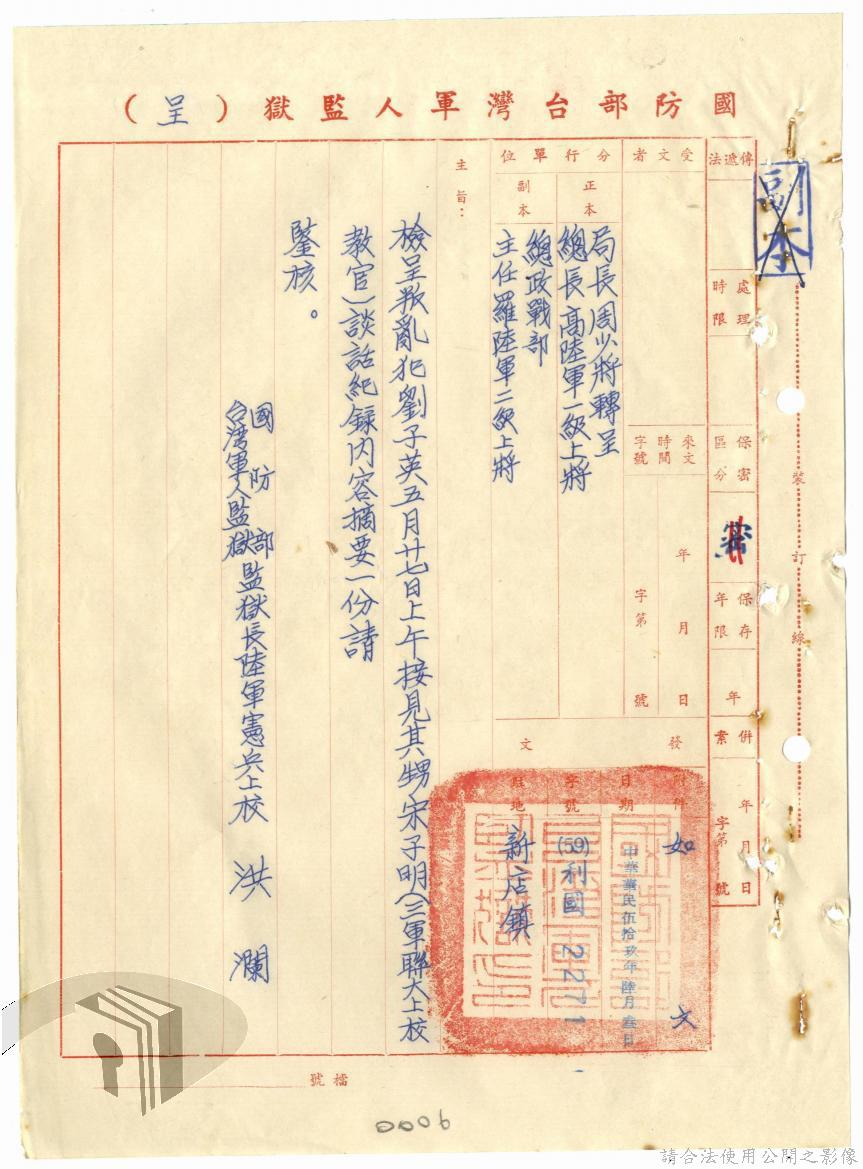 國防部台灣軍人監獄（呈）
副本
傳遞法
處理時限
保密區分
密
保存年限
年
併案
年月日
字第號
裝訂線
受文者
來文
時間
字號
年月日
字第號
分行單位
正本
局長周少將轉呈
總長高陸軍一級上將
副本
總政戰部
主任羅陸軍二級上將
發文
附件
如文
日期
中華民國伍拾玖年陸月叁日
字號
(59)利國2271
駐地
新店鎮
主旨：
檢呈叛亂犯劉子英五月廿七日上午接見其甥宋子明（三軍聯大上校
教官）談話紀錄內容摘要一份請
鑒核。
國防部
台灣軍人監獄
監獄長陸軍憲兵上校 洪瀾
檔號
0006
請合法使用公開之影像